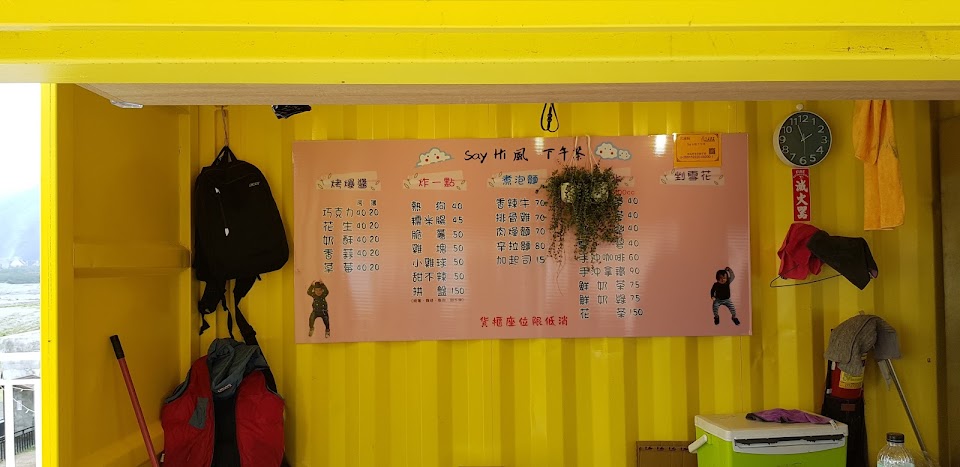 Say Hi 風 下午茶
烤爆醬
巧克力 40 20
花生 40 20
奶酥 40 20
香蒜 40 20
草莓 40 20
炸一點
熱狗 40
糯米腸 45
脆薯 50
雞塊 50
小雞球 50
甜不辣 50
拼盤 150
煮泡麵
香辣牛 70
排骨雞 70
肉燥麵 70
辛拉麵 80
加起司 15
40
40
手沖咖啡 60
手沖拿鐵 90
鮮奶茶 75
鮮奶綠 75
花茶 150
剉雪花
貨櫃座位限低消
滅火器